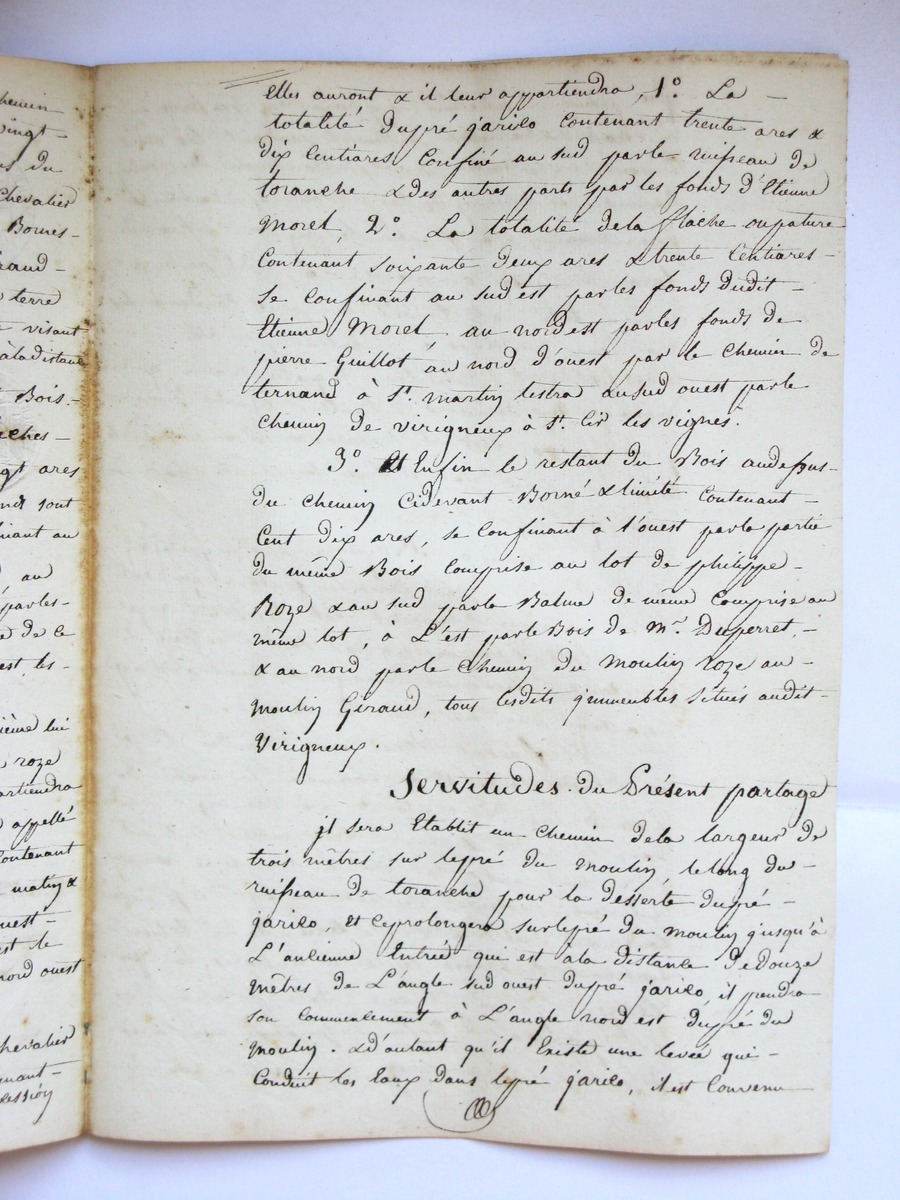 chemin
vingt-
es du
Chevalier
Bornes-
raud-
terre
visant
à la distance
Bois.-
eches-
gt ares
nds sont
inant au
, au
parles-
de ce
est, les-
ième lui
roze
artiendra
appellé
contenant
matin &
uest-
st le
nord ouest
hevalier
nant-
cession
elles auront & il leur appartiendra, 1.° La -
totalité dupré jarilo contenant trente ares &
dix Centiares Confiné au sud parle ruisseau de
toranche & des autres parts par les fonds d'Etienne
morel, 2.° La totalité dela flache oupature
Contenant soixante deux ares & trente Centiares -
se Confinant au sud est par les fonds dudit -
Etienne Morel, au nord est parles fonds de
pierre Guillot au nord d'ouest par le Chemin de
ternand à St. martin lestra au sud ouest parle
Chemin de virigneux à St. Cir les vignes.
3.° Et Enfin le restant du Bois audessus-
du Chemin Cidevant Borné & limité Contenant -
Cent dix ares, se Confinant à l'ouest parla partie
du même Bois Comprise au lot de philippe -
Roze & au sud parla Balme de même Comprise au
même lot, à L'est parle Bois de Mr. Duperret, -
& au nord parle Chemin du Moulin roze au -
Moulin Giraud, tous lesdits jmmeubles situés audit -
Virigneux.
Servitudes du Présent partage
jl sera Etablit un Chemin dela largeur de
trois mètres sur lepré du Moulin, le long du -
ruisseau de toranche pour la desserte dupré -
jarilo, et ceprolongera surlepré du moulin jusqu'à
L'ancienne Entrée qui est àla distance dedouze
mètres de L'angle sud ouest dupré jarilo, il prendra
son Commencement à L'angle nord est dupré du
Moulin. & d'autant qu'il Existe une levée qui -
Conduit les Eaux dans lepré jarilo, il est Convenu